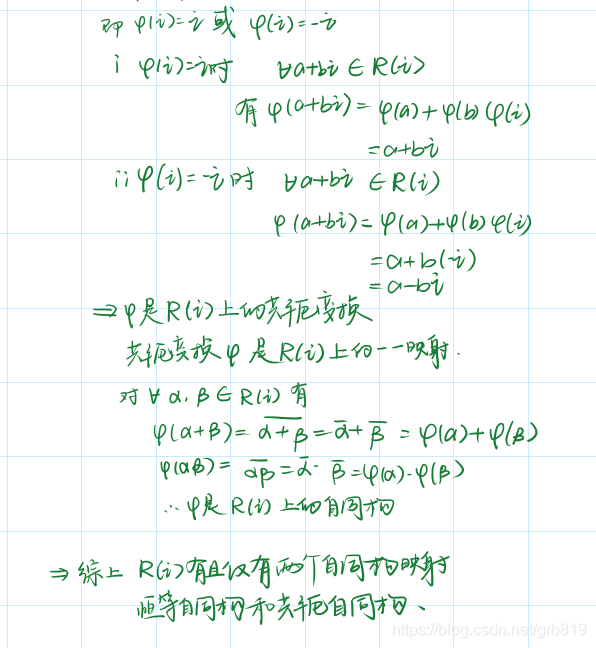 即 φ(i)=i 或 φ(i)=-i
i φ(i)=i时 ∀a+bi ∈ R(i)
有 φ(a+bi) = φ(a)+φ(b)φ(i)
=a+bi
ii φ(i)=-i 时 ∀a+bi ∈ R(i)
φ(a+bi) = φ(a)+φ(b)φ(i)
=a+b(-i)
=a-bi
⇒ φ是R(i)上的共轭变换
共轭变换 φ 是 R(i)上的一一映射.
对 ∀ α, β ∈ R(i) 有
φ(α+β) = \overline{α+β} = \overline{α}+\overline{β} = φ(α)+φ(β)
φ(αβ) = \overline{αβ} = \overline{α}·\overline{β} = φ(α)·φ(β)
∴ φ是 R(i) 上的自同构
⇒ 综上 R(i)有且仅有两个自同构映射
恒等自同构和共轭自同构、
https://blog.csdn.net/grb819